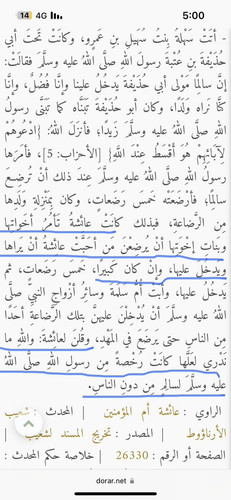 14 4G 5:00
- أتَتْ سَهْلةُ بِنتُ سُهَيلِ بنِ عَمرٍو، وكانَتْ تَحتَ أبي
حُذَيْفةَ بنِ عُتْبةَ رسولَ اللهِ صلَّى اللهُ عليه وسلَّمَ فقالتْ:
إنَّ سالِمًا مَوْلى أبي حُذَيْفةَ يَدخُلُ علينا وإنَّا فُضُلٌ، وإنَّا
كنَّا نَراه ولَدًا، وكان أبو حُذَيْفةَ تَبَنَّاه كما تَبَنَّى رسولُ
اللهِ صلَّى اللهُ عليه وسلَّمَ زَيدًا؛ فأنزَلَ اللهُ: {ادْعُوهُمْ
لِآبَائِهِمْ هُوَ أَقْسَطُ عِنْدَ اللَّهِ} [الأحزاب: 5]، فأمَرَها
رسولُ اللهِ صلَّى اللهُ عليه وسلَّمَ عِندَ ذلك أنْ تُرضِعَ
سالِمًا؛ فأرْضَعَتْه خَمسَ رَضَعاتٍ، وكان بمَنزِلةِ ولَدِها
مِن الرَّضاعةِ، فبذلك كانَتْ عائشةُ تَأمُرُ أخَواتِها
وبَناتِ إخْوَتِها أنْ يُرضِعنَ مَن أحَبَّتْ عائشةُ أنْ يَراها
ويَدخُلَ عليها، وإنْ كان كَبيرًا، خَمسَ رَضَعاتٍ، ثم
يَدخُلُ عليها، وأبَتْ أُمُّ سَلَمةَ وسائرُ أزْواجِ النبيِّ صلَّى
اللهُ عليه وسلَّمَ أنْ يُدخِلْنَ عليهِنَّ بتلك الرَّضاعةِ أحَدًا
مِن الناسِ حتى يَرضَعَ في المَهْدِ، وقُلنَ لعائشةَ: واللهِ ما
نَدْري لعَلَّها كانَتْ رُخْصةً مِن رسولِ اللهِ صلَّى اللهُ
عليه وسلَّمَ لسالِمٍ مِن دونِ الناسِ.
الراوي : عائشة أم المؤمنين | المحدث : شعيب
الأرناؤوط | المصدر : تخريج المسند لشعيب
الصفحة أو الرقم : 26330 | خلاصة حكم المحدث :
dorar.net